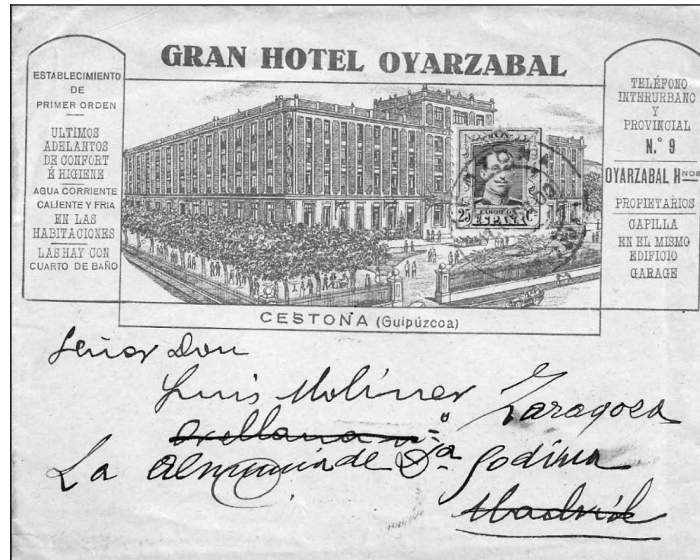 GRAN HOTEL OYARZABAL
ESTABLECIMIENTO
DE
PRIMER ORDEN
ULTIMOS
ADELANTOS
DE CONFORT
É HIGIENE
AGUA CORRIENTE
CALIENTE Y FRIA
EN LAS
HABITACIONES
LAS HAY CON
CUARTO DE BAÑO
25 CORREOS C
ESPAÑA
TELÉFONO
INTERURBANO
Y
PROVINCIAL
N.º 9
OYARZABAL Hnos
PROPIETARIOS
CAPILLA
EN EL MISMO
EDIFICIO
GARAGE
CESTONA (Guipúzcoa)
Señor Don
Luis Moliner Zaragoza
Orellana nº
La Almunia de Dª Godina
Madrid